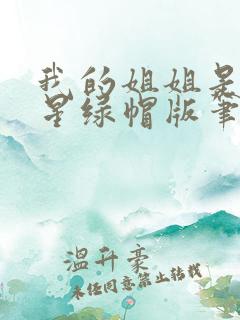 我的姐姐是
星绿帽版筆
温升豪
未经同意禁止转载